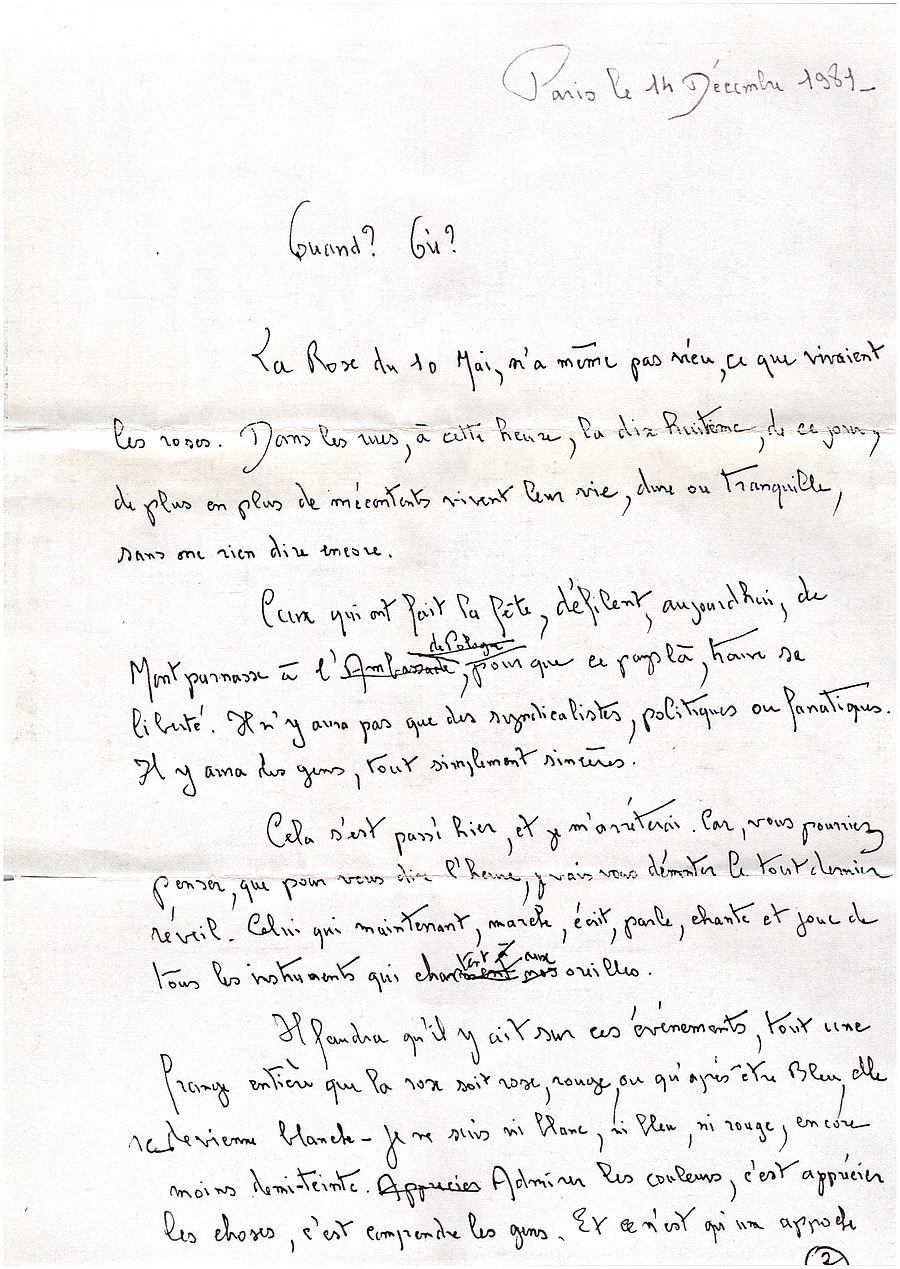 Paris le 14 Décembre 1981_
Quand? Où?
La Rose du 10 Mai, n'a même pas vécu, ce que vivaient
les roses. Dans les rues, à cette heure, la dix huitème, de ce jour,
de plus en plus de mécontents vivent leur vie, dure ou tranquille,
sans one rien dire encore.
Ceux qui ont fait la fête, défilent, aujourd'hui, de
de Pologne
Montparnasse à l'Ambassade, pour que ce pays là, trouve sa
liberté. Il n'y aura pas que des syndicalistes, politiques ou fanatiques.
Il y aura des gens, tout simplement sincères.
Cela s'est passé hier, et je m'arrêterai. Car, vous pourriez
penser, que pour vous dire l'heure, je vais vous démonter le tout dernier
réveil. Celui qui maintenant, marche, écrit, parle, chante et joue de
tous les instruments qui chantent à aux oreilles.
Il faudra qu'il y ait sur ces événements, tout une
frange entière que la rose soit rose, rouge, ou qu'après être Bleu, elle
redevienne blanche - Je ne suis ni blanc, ni bleu, ni rouge, encore
moins demi-teinte. Apprécier Admirer les couleurs, c'est apprécier
les choses, c'est comprendre les gens. Et ce n'est qu'une approche
2